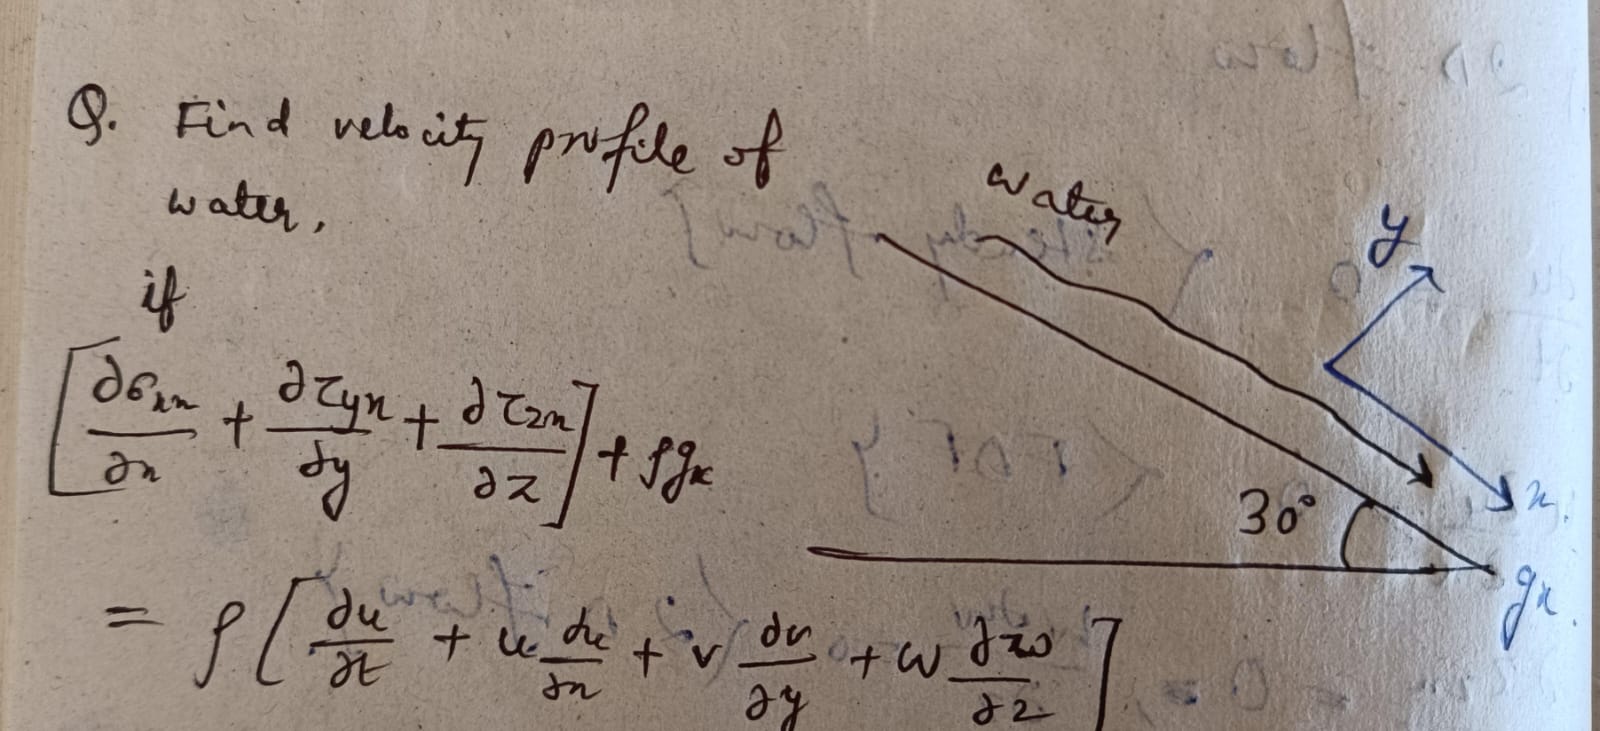 Q. Find velocity profile of
water,
if
[∂σxx/∂x + ∂τyx/∂y + ∂τzx/∂z] + ρgx
= ρ[∂u/∂t + u ∂u/∂x + v ∂v/∂y + w ∂w/∂z]
water
y
x
30°
gx